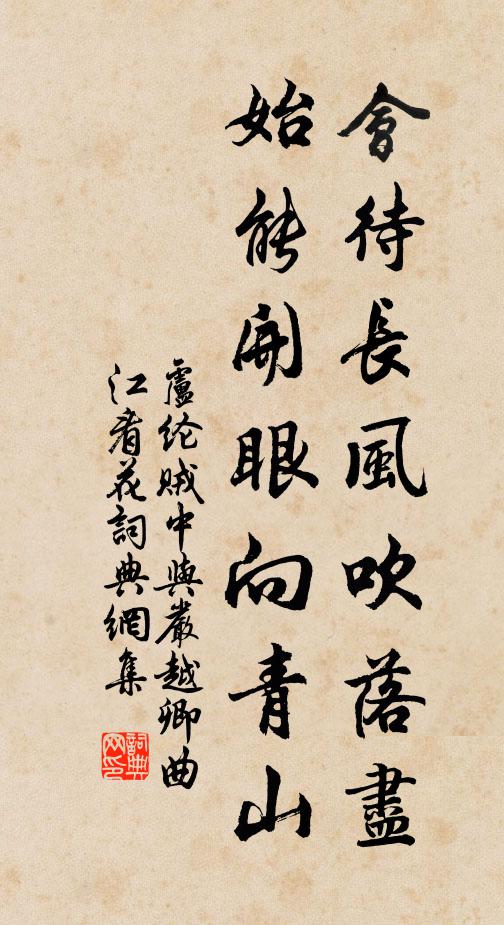 會待長風吹落盡
始能開眼向青山
盧纶賊中與嚴越卿曲
江看花詞典網集
詞典網印